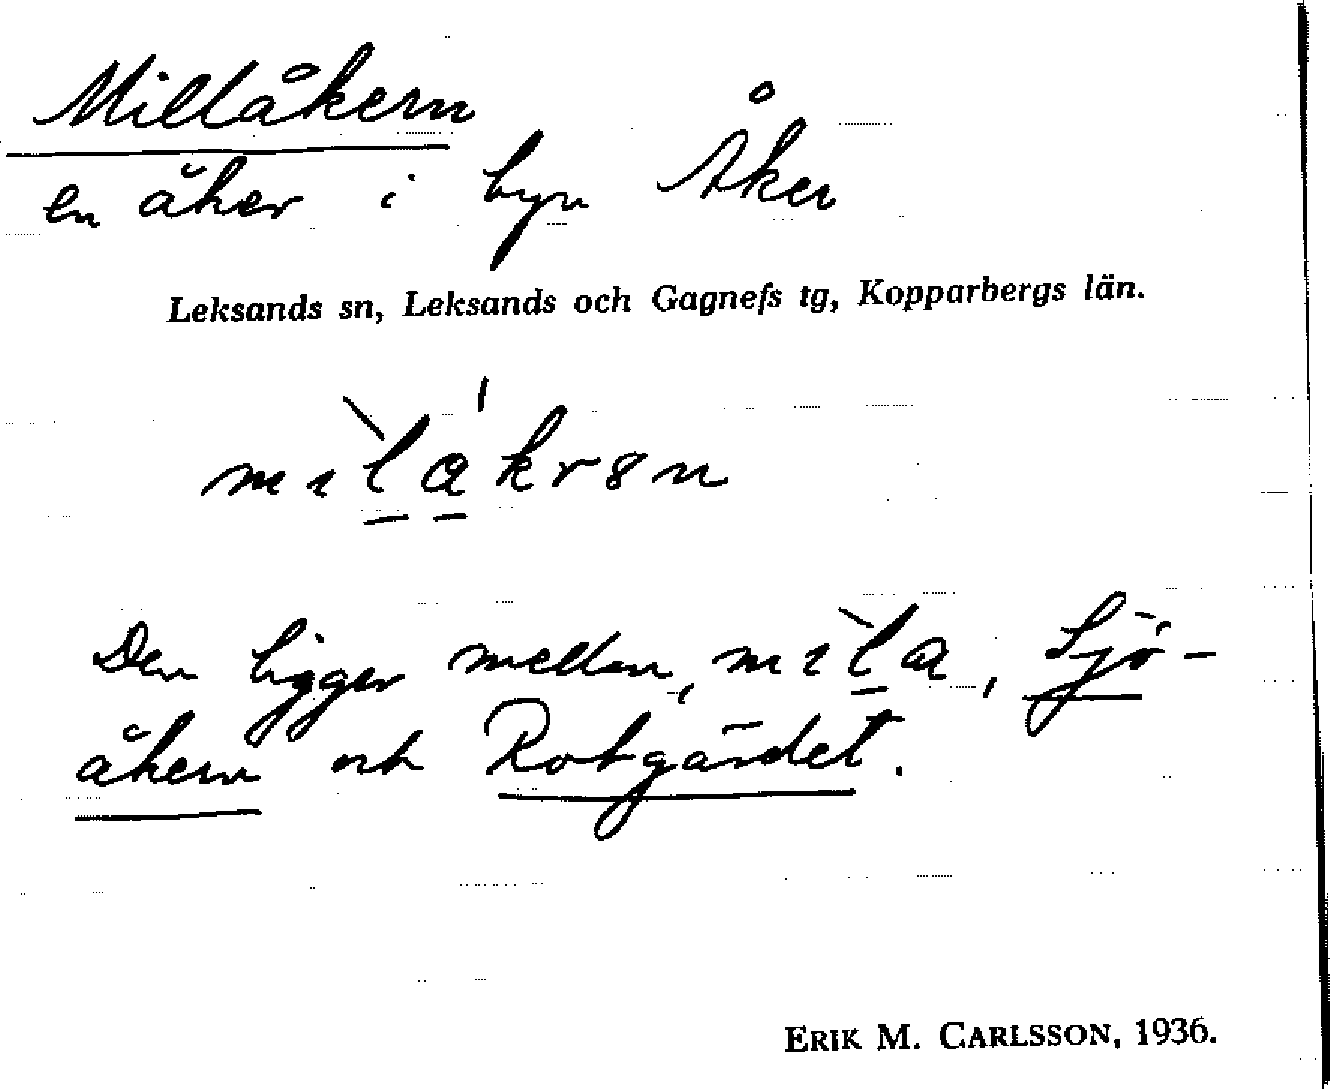 Millåkern
en åker i byn Åker
Leksands sn, Leksands och Gagnefs tg, Kopparbergs län.
mılakrən
Den ligger mellan, mıla, Sjö-
åkern och Rotgärdet.
ERIK M. CARLSSON, 1936.